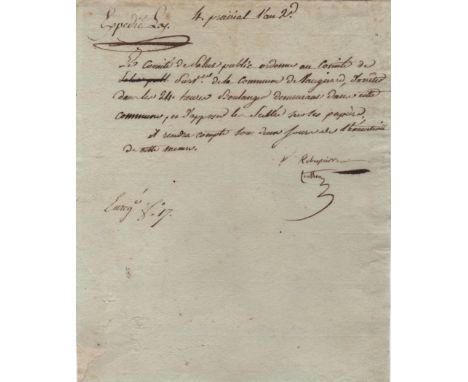 Expedié
4. prairial l'an 2.d
Le Comité de Salut public ordonne au Comité de
Surv.ce de la Commune de d'arrêter
dans les 24 heures Boulanger demeurant dans cette
Commune, et d'apposer le Scellé sur les papiers,
il rendra compte sous deux jours de l'éxécution
de cette mesure.
Enreg.é f.o 17.